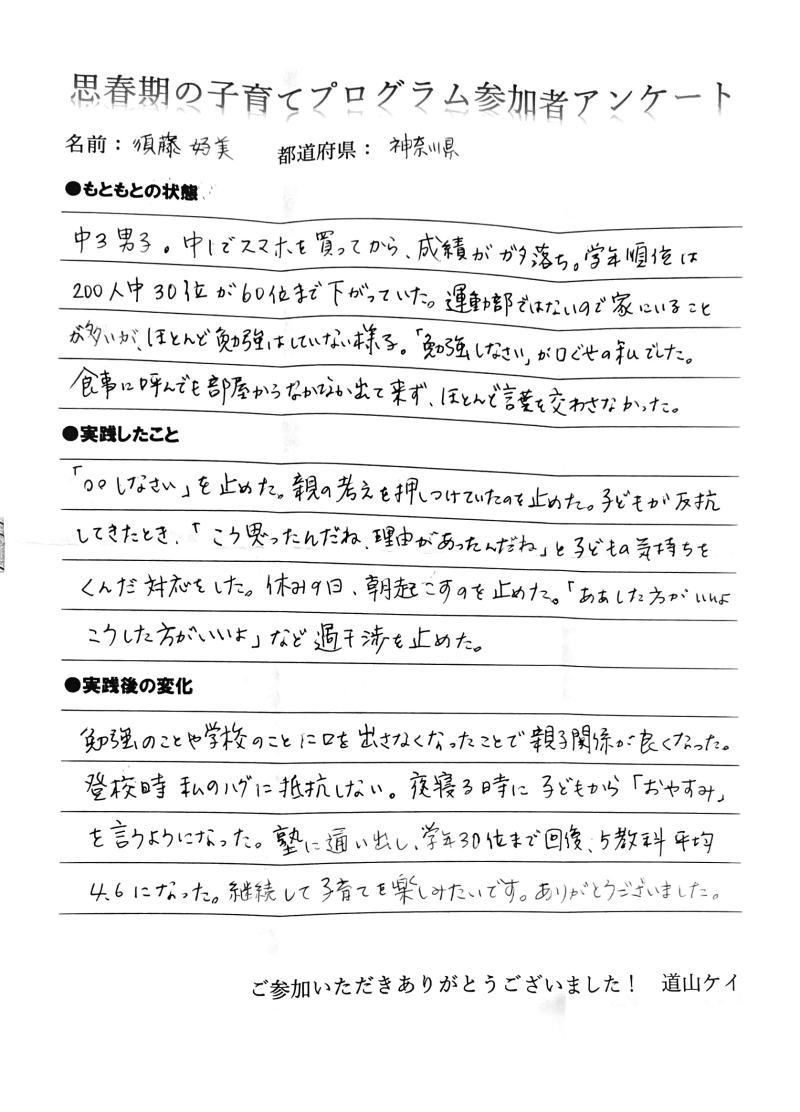 思春期の子育てプログラム参加者アンケート
名前：須藤 好美　都道府県：神奈川県
●もともとの状態
中3男子。中1でスマホを買ってから、成績がガタ落ち。学年順位は
200人中30位が60位まで下がっていた。運動部ではないので家にいること
が多いが、ほとんど勉強はしていない様子。「勉強しなさい」が口ぐせの私でした。
食事に呼んでも部屋からなかなか出て来ず、ほとんど言葉を交わさなかった。
●実践したこと
「○○しなさい」を止めた。親の考えを押しつけていたのを止めた。子どもが反抗
してきたとき、「こう思ったんだね、理由があったんだね」と子どもの気持ちを
くんだ対応をした。休みの日、朝起こすのを止めた。「ああした方がいいよ
こうした方がいいよ」など過干渉を止めた。
●実践後の変化
勉強のことや学校のことに口を出さなくなったことで親子関係が良くなった。
登校時 私のハグに抵抗しない。夜寝る時に子どもから「おやすみ」
を言うようになった。塾に通い出し、学年30位まで回復、5教科平均
4.6になった。継続して子育てを楽しみたいです。ありがとうございました。
ご参加いただきありがとうございました！　道山ケイ